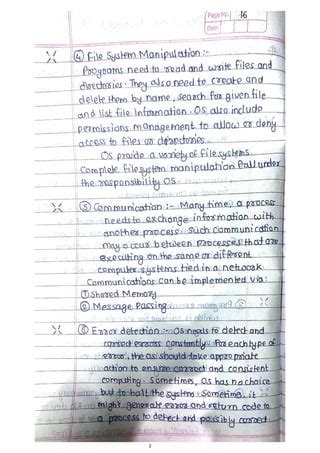 Page No. 16
Date
④ File System Manipulation :-
Programs need to read and write files and
directories. They also need to create and
delete them by name, search for given file
and list file Information. OS also include
permissions management to allow or deny
access to files or directories.
OS provide a variety of file systems.
Complete file system manipulation fall under
the responsibility OS.
⑤ Communication :- Many time, a process
needs to exchange information with
another process. Such communication
may occur between processes that are
executing on the same or different
computer systems tied in a network.
Communications can be implemented via:
① Shared Memory
② Message Passing
⑥ Error detection :- OS needs to detect and
correct errors constantly. For each type of
error, the os should take appropriate
action to ensure correct and consistent
computing. Sometimes, OS has no choice
but to halt the system. Sometime, it
might generate error and return code to
a process to detect and possibly correct.
2